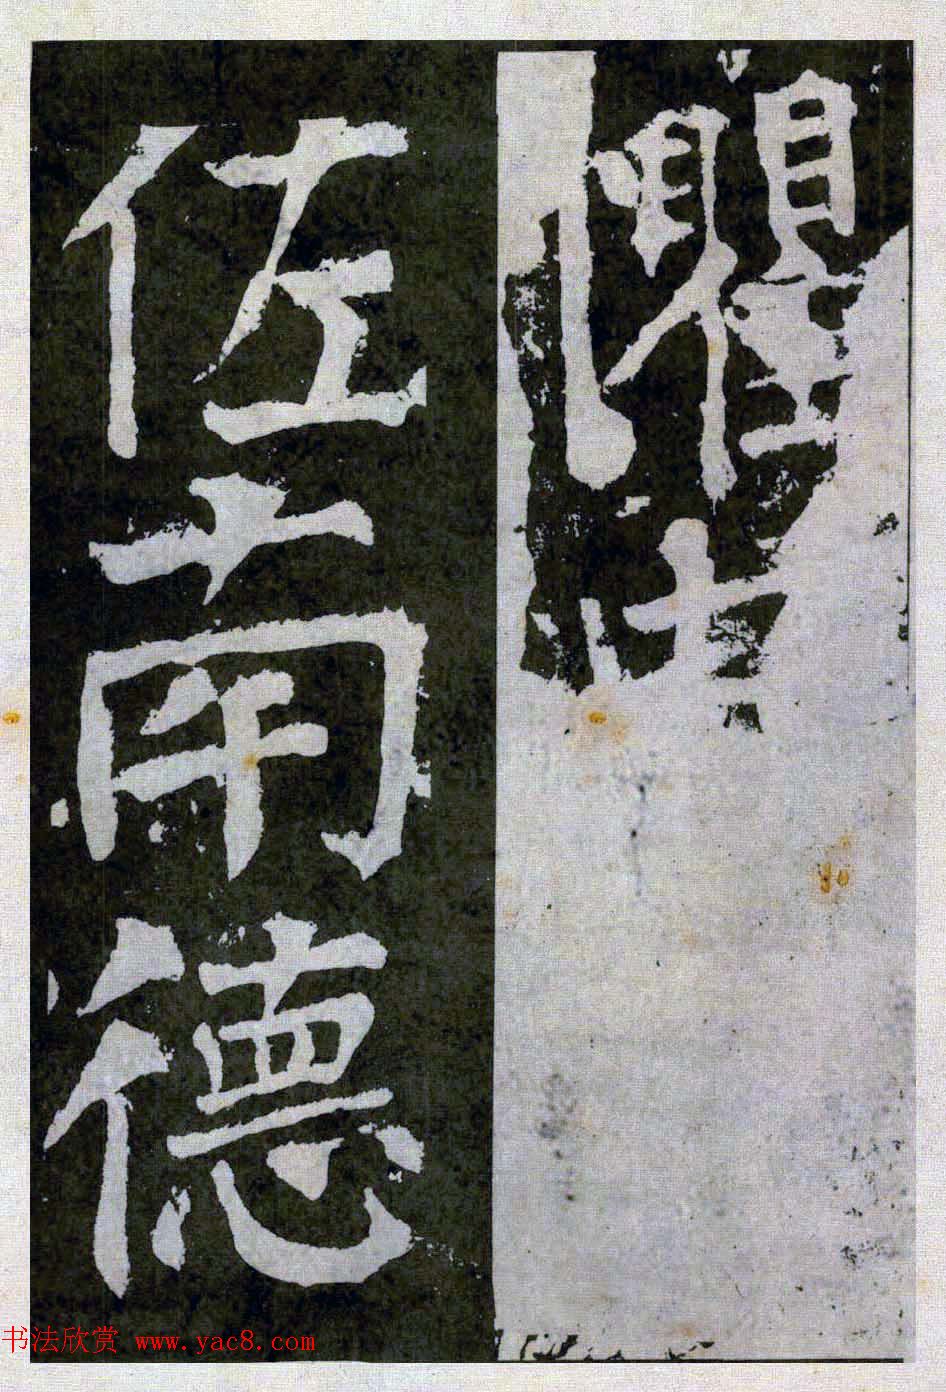 懼
佐南德
书法欣赏 www.yac8.com